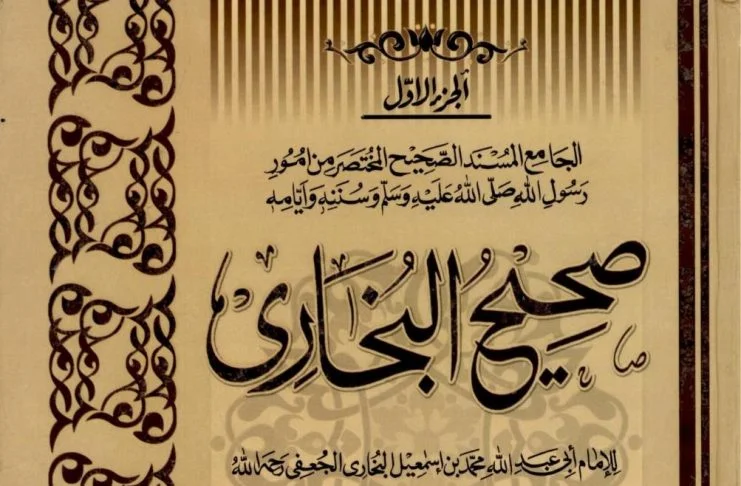 الجزء الاوّل
الجامع المسند الصّحيح المختصر من امور
رسول الله صلّى الله عليه وسلّم وسننه وايّامه
صحيح البخاري
للإمام أبي عبد الله محمّد بن اسمعيل البخاري الجعفي رحمه الله